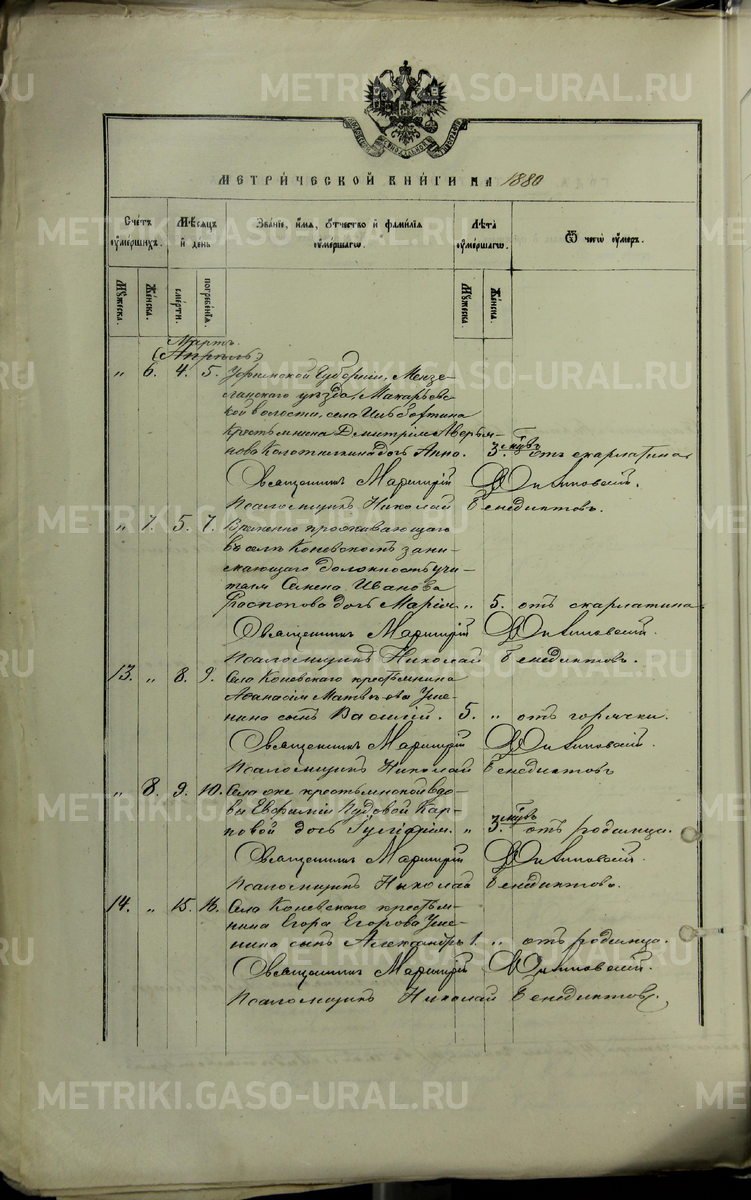 METRIKI.GASO-URAL.RU
МЕТРИ́ЧЕСКОЙ КНИ́ГИ НА 1880
Сче́тъ ᲂу҆ме́ршихъ.
Мѣ́сяцъ и҆ день
Зва́нїе, и҆́мя, ѻ҆́тчество и҆ фами́лїя ᲂу҆ме́ршагѡ.
Лѣ́та ᲂу҆ме́ршагѡ.
Ѿ чегѡ̀ ᲂу҆́меръ.
Мꙋ́жеска.
Же́нска.
сме́рти.
погребе́нїя.
Мꙋ́жеска.
Же́нска.
Мартъ.
(Апрѣль)
" 6. 4. 5. Уфимской Губерніи, Мензе-
линскаго уѣзда, Макарьевс-
кой волости, села
крестьянина Димитрія Аверья-
нова дочь Анна. 3. мцвъ отъ скарлатина
Священникъ Мартирій
Псаломщикъ Николай Бенедиктовъ.
" 7. 5. 7. Временно проживающаго
въ селѣ Коневскомъ зани-
мающаго должность учи-
теля Семена Иванова
Распопова дочь Марія. " 5. отъ скарлатина
Священникъ Мартирій
Псаломщикъ Николай Бенедиктовъ.
13. " 8. 9. Села Коневскаго крестьянина
Аѳанасія Матвѣева Уше-
нина сынъ Василій. 5. " отъ горячки.
Священникъ Мартирій
Псаломщикъ Николай Бенедиктовъ
" 8. 9. 10. Села оже крестьянской вдо-
вы Евфиміи Пудовой Кар-
повой дочь Гликерія. " 3. мцвъ отъ родимца.
Священникъ Мартирій
Псаломщикъ Николай Бенедиктовъ.
14. " 15. 16. Села Коневскаго крестья-
нина Егора Егорова Уше-
нина сынъ Александръ 1. " отъ родимца.
Священникъ Мартирій
Псаломщикъ Николай Бенедиктовъ.